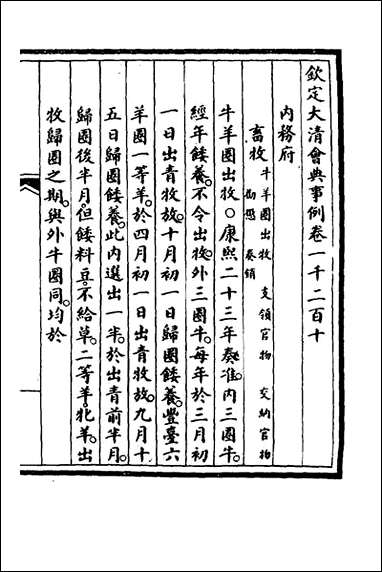 欽定大清會典事例卷一千二百十
內務府
畜牧 牛羊圈出牧 支領官物 交納官物 勸懲 奏銷
牛羊圈出牧○康熙二十三年奏准。內三圈牛。
經年餧養。不令出牧。外三圈牛。每年於三月初
一日出青牧放。十月初一日歸圈餧養。豐臺六
羊圈一等羊。於四月初一日出青牧放。九月十
五日歸圈餧養。此內選出一半。於出青前半月。
歸圈後半月。但餧料豆。不給草。二等羊。牝羊。出
牧歸圈之期。與外牛圈同。均於